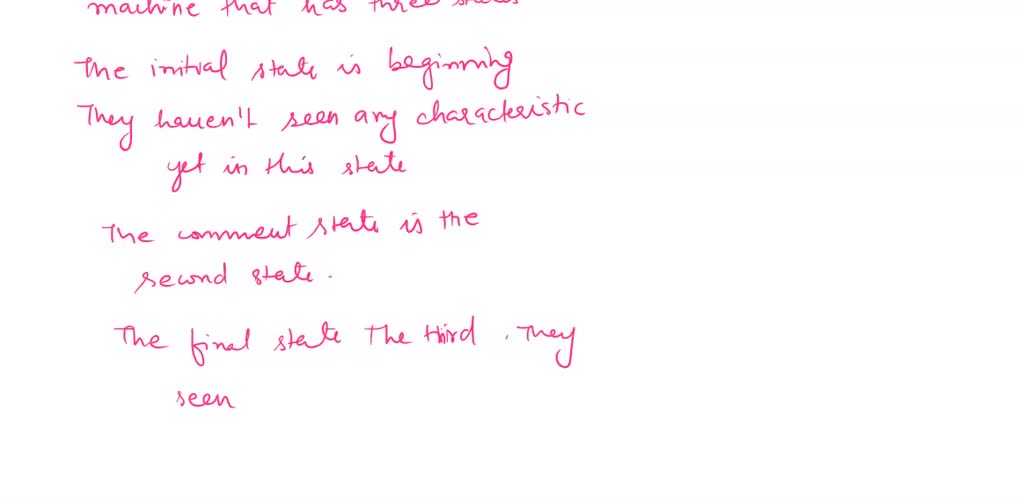 machine that has three states
The initial state is beginning
They haven't seen any characteristic
yet in this state
The comment state is the
second state.
The final state The third. They
seen